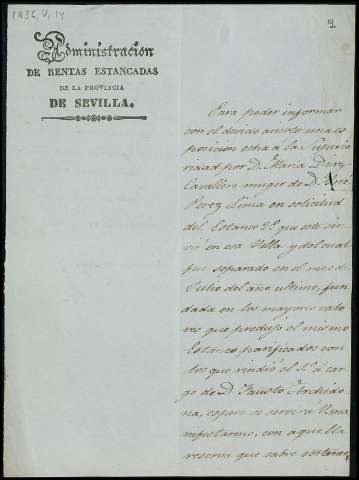 1836, V, 14
9
Administracion
DE RENTAS ESTANCADAS
DE LA PROVINCIA
DE SEVILLA.
Para poder informar
con el devido acierto una es
posicion echa a la Superio
ridad por D. Maria Diaz
Cavallero muger de D. José
Perez Lima en solicitud
del Estanco 2º que este sir
vió en esa Villa y del cual
fue separado en el mes de
Julio del año ultimo, fun
dada en los mayores valo
res que produjo el mismo
Estanco parificados con
los que rindió el 1º á car
go de D. Fausto Archido
na, espero se servirá V. ma
nifestarme, con aquella
reserva que sabe